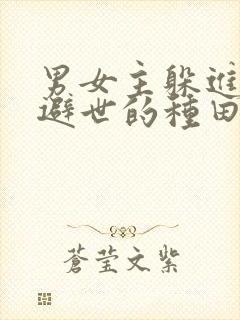 男女主躲進
避世的種田
蒼瑩文紫